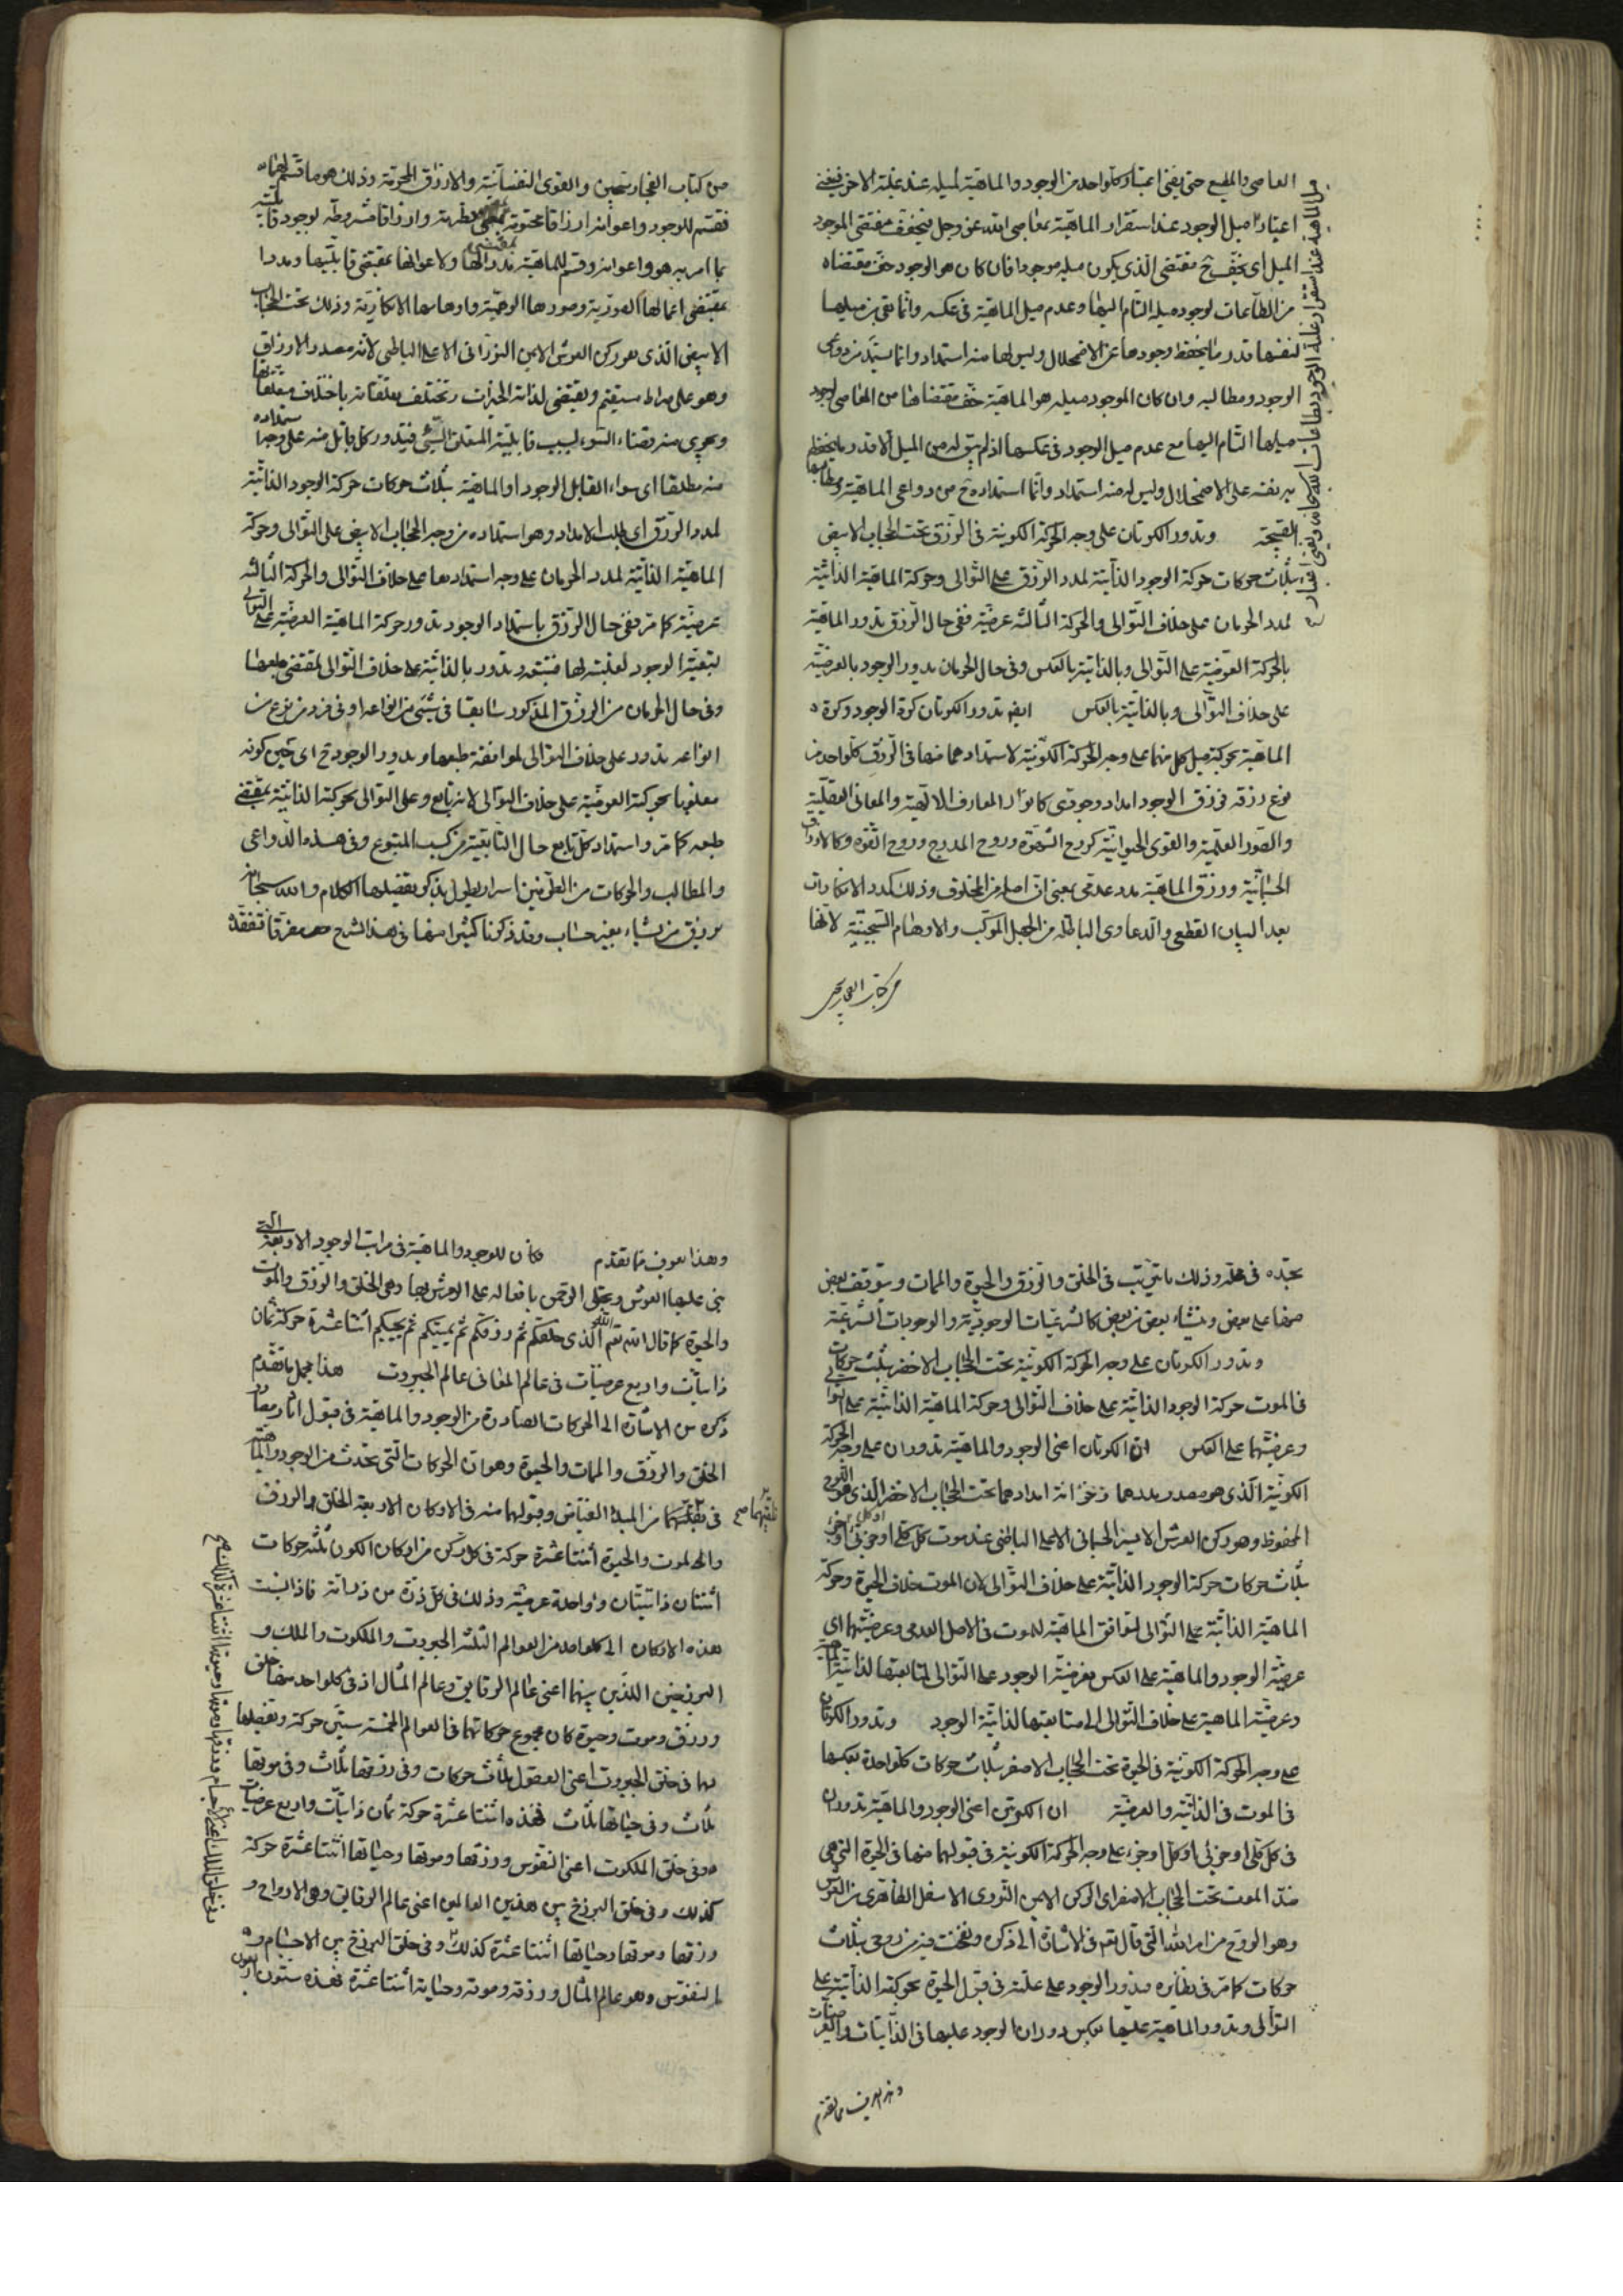 العاصي والمطيع حتى يفنى اعتبار كلواحد من الوجود والماهية لميله عند غلبة الاخر فيفنى
اعتبار ميل الوجود عند استقرار الماهية بمعاصي الله عز وجل فيخفف مقتضى الموجود
الميل اي يخف ح مقتضى الذي يكون ميله موجودا فان كان هو الوجود خف مقتضاه
من الطاعات لوجود ميله التام اليها وعدم ميل الماهية في عكسه وانما بقي من ميلها
لنفسها قدر ما يحفظ وجودها عن الاضمحلال وليس لها منه استمداد وانما يستمد من دواعي
الوجود ومطالبه وان كان الموجود ميله هو الماهية خف مقتضاها من المعاصي لوجود
ميلها التام اليها مع عدم ميل الوجود في عكسها اذ لم يبق له من الميل الا قدر ما يحفظ
به نفسه على الاضمحلال وليس له منه استمداد وانما استمداده ح من دواعي الماهية ومطالبها
القبيحة وتدور الكرتان على وجه الحركة الكونية في الرزق تحت الحجاب الابيض
بثلاث حركات حركة الوجود الذاتية لمدد الرزق على التوالي وحركة الماهية الذاتية
لمدد الحرمان على خلاف التوالي والحركة الثالثة عرضية ففي حال الرزق تدور الماهية
بالحركة العرضية على التوالي وبالذاتية بالعكس وفي حال الحرمان يدور الوجود بالعرضية
على خلاف التوالي وبالذاتية بالعكس ايضا تدور الكرتان كرة الوجود وكرة
الماهية بحركة ميل كل منهما على وجه الحركة الكونية لاستمدادهما منها في الرزق كلواحد من
نوع رزقه فرزق الوجود امداد وجودي كانوار المعارف الالهية والمعاني العقلية
والصور العلمية والقوى الحيوانية كروح الشهوة وروح المدرج وروح القوة وكالارزاق
الجسمانية ورزق الماهية مدد عدمي بمعنى ان اصله من المخلوق وذلك كمدد الانكارات
بعد البيان القطعي والدعاوى الباطلة من الجهل المركب والاوهام السجينية لانها
من كتاب الفجار سجين
من كتاب الفجار سجين والقوى النفسانية والارزاق المحرمة وذلك هو ما قسم
فقسم للوجود واعوانه ارزاقا محتومة وارزاقا مشروطة لوجود قابلية
بما امر به هو واعوانه وقسم للماهية مددا لها ولاعوانها بمقتضى قابليتها ومددا
بمقتضى اعمالها الغرورية وصورها الوهمية واوهامها الانكارية وذلك تحت الحجاب
الابيض الذي هو ركن العرش الايمن النوراني الاعلى الباطني لانه مصدر الارزاق
وهو على صراط مستقيم ويقتضي لذاته الخيرات وتختلف تعلقاته باختلاف متعلقاتها
ويجري منه قضاء السوء لسبب قابلية المتعلق السيئ فيتدور كل قابل منه على وجه استمداده
منه مطلقا اي سواء القابل الوجود او الماهية بثلاث حركات حركة الوجود الذاتية
لمدد الرزق اي طلب الامداد وهو استمداده من وجه الحجاب الابيض على التوالي وحركة
الماهية الذاتية لمدد الحرمان على وجه استمدادها على خلاف التوالي والحركة الثالثة
عرضية كما مر ففي حال الرزق باستمداد الوجود تدور حركة الماهية العرضية على التوالي
بتبعية الوجود لغلبته لها فتتبعه وتدور بالذاتية على خلاف التوالي بمقتضى طبعها
وفي حال الحرمان من الرزق المذكور سابقا في شيء من انواعه او في فرد من نوع من
انواعه تدور على خلاف التوالي لموافقة طبعها ويدور الوجود ح اي حين كونه
مغلوبا بحركته العرضية على خلاف التوالي لانه تابع وعلى التوالي بحركته الذاتية بمقتضى
طبعه كما مر واستمداد كل تابع حال التابعية من كسب المتبوع وفي هذه الدواعي
والمطالب والحركات من الطرفين اسرار يطول بذكر تفصيلها الكلام والله سبحانه
يرزق من يشاء بغير حساب وقد ذكرنا كثيرا منها في هذا الشرح مفرقا فتفقده
تجده في محله وذلك ما يترتب في الخلق والرزق والحيوة والممات ويتوقف بعض
منها على بعض وينشاء بعض من بعض كالشرعيات الوجودية والوجوديات الشرعية
وتدور الكرتان على وجه الحركة الكونية تحت الحجاب الاخضر بثلث حركات
في الموت حركة الوجود الذاتية على خلاف التوالي وحركة الماهية الذاتية على التوالي
وعرضيتهما على العكس ان الكرتان اعني الوجود والماهية تدوران على وجه الحركة
الكونية الذي هو مصدر مددهما وخزانة امدادهما تحت الحجاب الاخضر الذي هو اللوح
المحفوظ وهو ركن العرش الايسر الاعلى الباطني عند موت كل كلي او جزئي
بثلاث حركات حركة الوجود الذاتية على خلاف التوالي لان الموت خلاف الحيوة وحركة
الماهية الذاتية على التوالي لتوافق الماهية للموت في الاصل العدمي وعرضيتهما اي
عرضية الوجود والماهية على العكس فعرضية الوجود على التوالي لمتابعتها لذاتية الماهية
وعرضية الماهية على خلاف التوالي الى متابعتها لذاتية الوجود وتدور الكرتان
على وجه الحركة الكونية في الحيوة تحت الحجاب الاصفر بثلاث حركات كلواحدة بعكسها
في الموت في الذاتية والعرضية ان الكرتين اعني الوجود والماهية تدوران
في كل كلي او جزئي او كل او جزء على وجه الحركة الكونية في قبولهما منها في الحيوة التي هي
ضد الموت تحت الحجاب الاصفر اي الركن الايمن النوري الاسفل الظاهري من العرش
وهو الروح من امر الله التي قال تعالى في الاشارة الى ذكره ونفخت فيه من روحي بثلاث
حركات كما مر في نظايره فيدور الوجود على علته في قبول الحيوة بحركته الذاتية على
التوالي وتدور الماهية عليها بعكس دوران الوجود عليها في الذاتيات والعرضيات
وهذا يعرف مما تقدم
وهذا يعرف مما تقدم فكان للوجود والماهية في مراتب الوجود الاربعة التي
بني عليها العرش وتجلى الرحمن بافعاله على العرش بها وهي الخلق والرزق والموت
والحيوة كما قال الله تعالى الله الذي خلقكم ثم رزقكم ثم يميتكم ثم يحييكم اثنتا عشرة حركة ثمان
ذاتيات واربع عرضيات في عالم المعاني عالم الجبروت هذا مجمل ما تقدم
ذكره من الاشارة الى الحركات الصادرة من الوجود والماهية في قبول اثار
الخلق والرزق والممات والحيوة وهو ان الحركات التي تحدث من الوجود والماهية
في تلقيهما من المبدأ الفياض وقبولهما منه في الاركان الاربعة الخلق والرزق
والموت والحيوة اثنتا عشرة حركة في كل ركن من اركان الكون ثلثه حركات
اثنتان ذاتيتان وواحدة عرضية وذلك في كل ذرة من ذراته فاذا نسبت
هذه الاركان الى كلواحد من العوالم الثلثة الجبروت والملكوت والملك و
البرزخين اللذين بينهما اعني عالم الرقايق وعالم المثال اذ في كلواحد منها خلق
ورزق وموت وحيوة كان مجموع حركاتهما في العوالم الخمسة ستين حركة وتفصيلها
بها في خلق الجبروت اعني العقول ثلاث حركات وفي رزقها ثلاث وفي موتها
ثلاث وفي حياتها ثلاث فهذه اثنتا عشرة حركة ثمان ذاتيات واربع عرضيات
وفي خلق الملكوت اعني النفوس ورزقها وموتها وحياتها اثنتا عشرة حركة
كذلك وفي خلق البرزخ بين هذين العالمين اعني عالم الرقايق وهي الارواح و
رزقها وموتها وحياتها اثنتا عشرة كذلك وفي خلق البرزخ بين الاجسام و
النفوس وهو عالم المثال ورزقه وموته وحياته اثنتا عشرة فهذه ستون
وفي خلق الملك اعني الاجسام ورزقها وموتها وحيوتها اثنتا عشرة كذلك صح